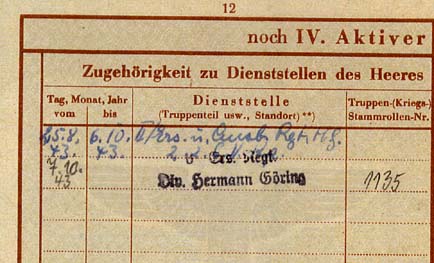 12
noch IV. Aktiver
Zugehörigkeit zu Dienststellen des Heeres
Tag, Monat, Jahr
vom
bis
Dienststelle
(Truppenteil usw., Standort) **)
Truppen-(Kriegs-)
Stammrollen-Nr.
25.8. 6.10. Ers. u. Ausb. Rgt. H.G.
43. 43. 2.
7.10. Ers. Regt.
43 Div. Hermann Göring 1135